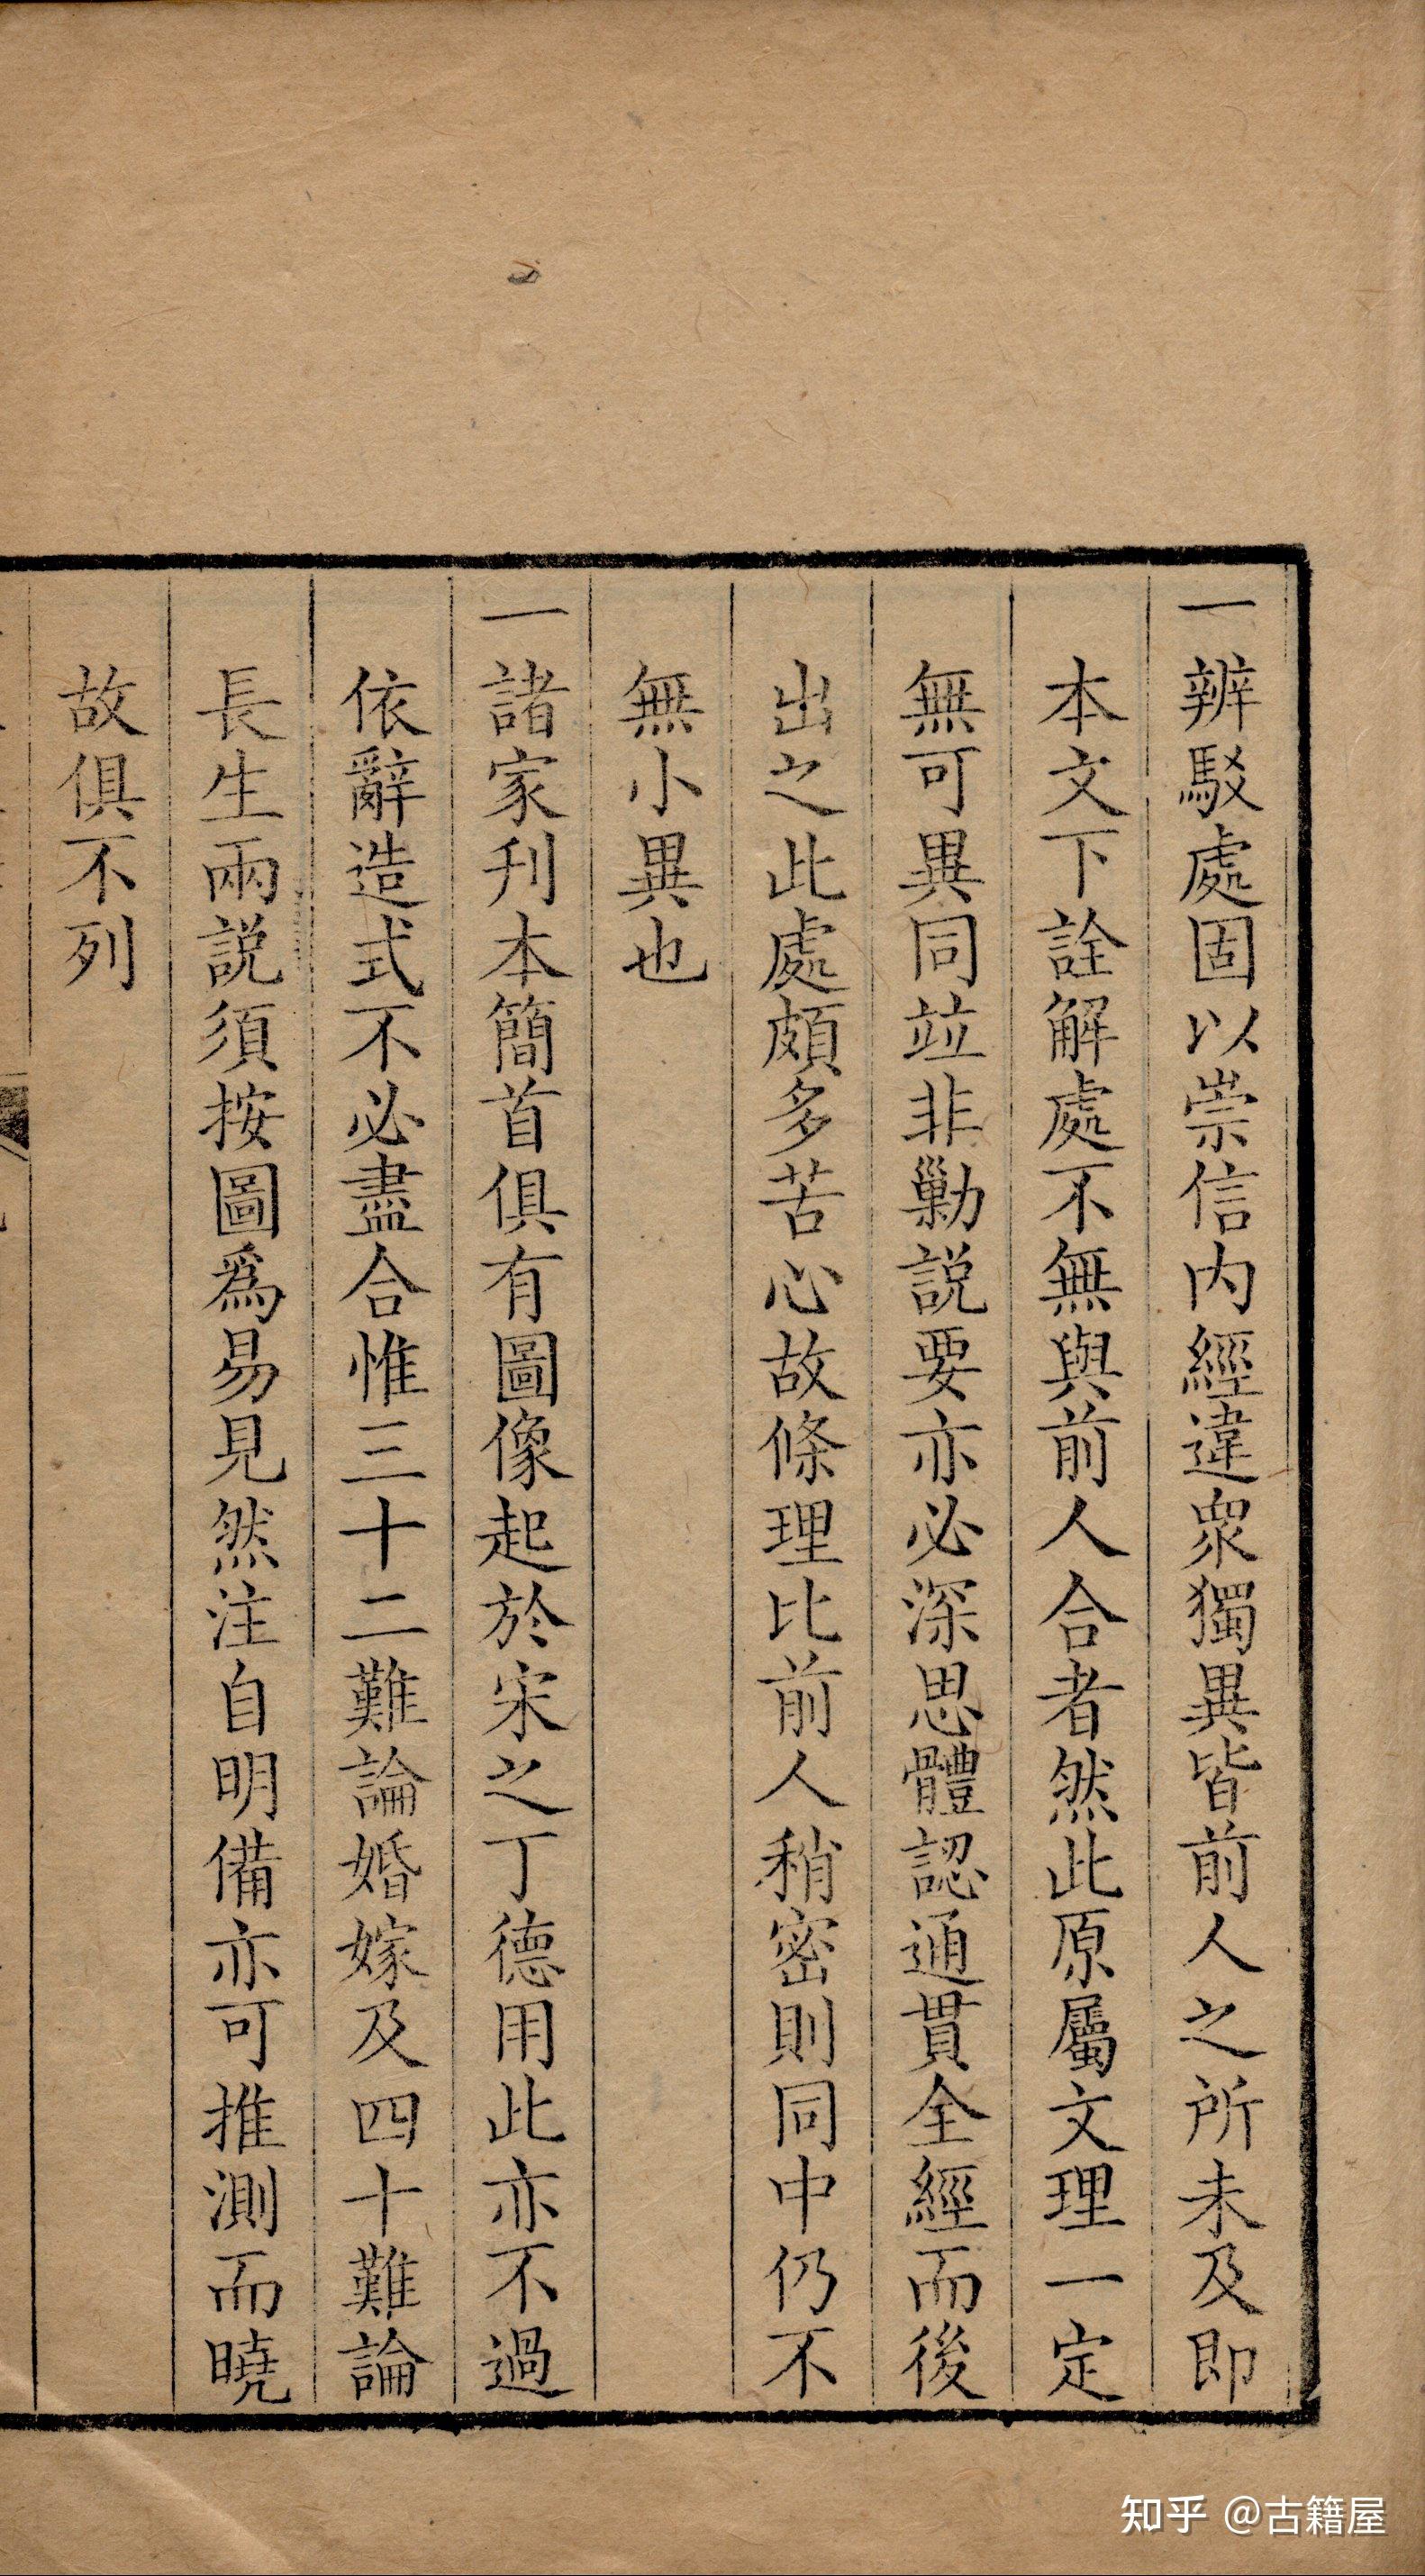 一辨駁處固以崇信内經違衆獨異皆前人之所未及即
本文下詮解處不無與前人合者然此原屬文理一定
無可異同竝非勦説要亦必深思體認通貫全經而後
出之此處頗多苦心故條理比前人稍密則同中仍不
無小異也
一諸家刋本簡首俱有圖像起於宋之丁德用此亦不過
依辭造式不必盡合惟三十二難論婚嫁及四十難論
長生兩説須按圖爲易見然注自明備亦可推測而曉
故俱不列
知乎 @古籍屋